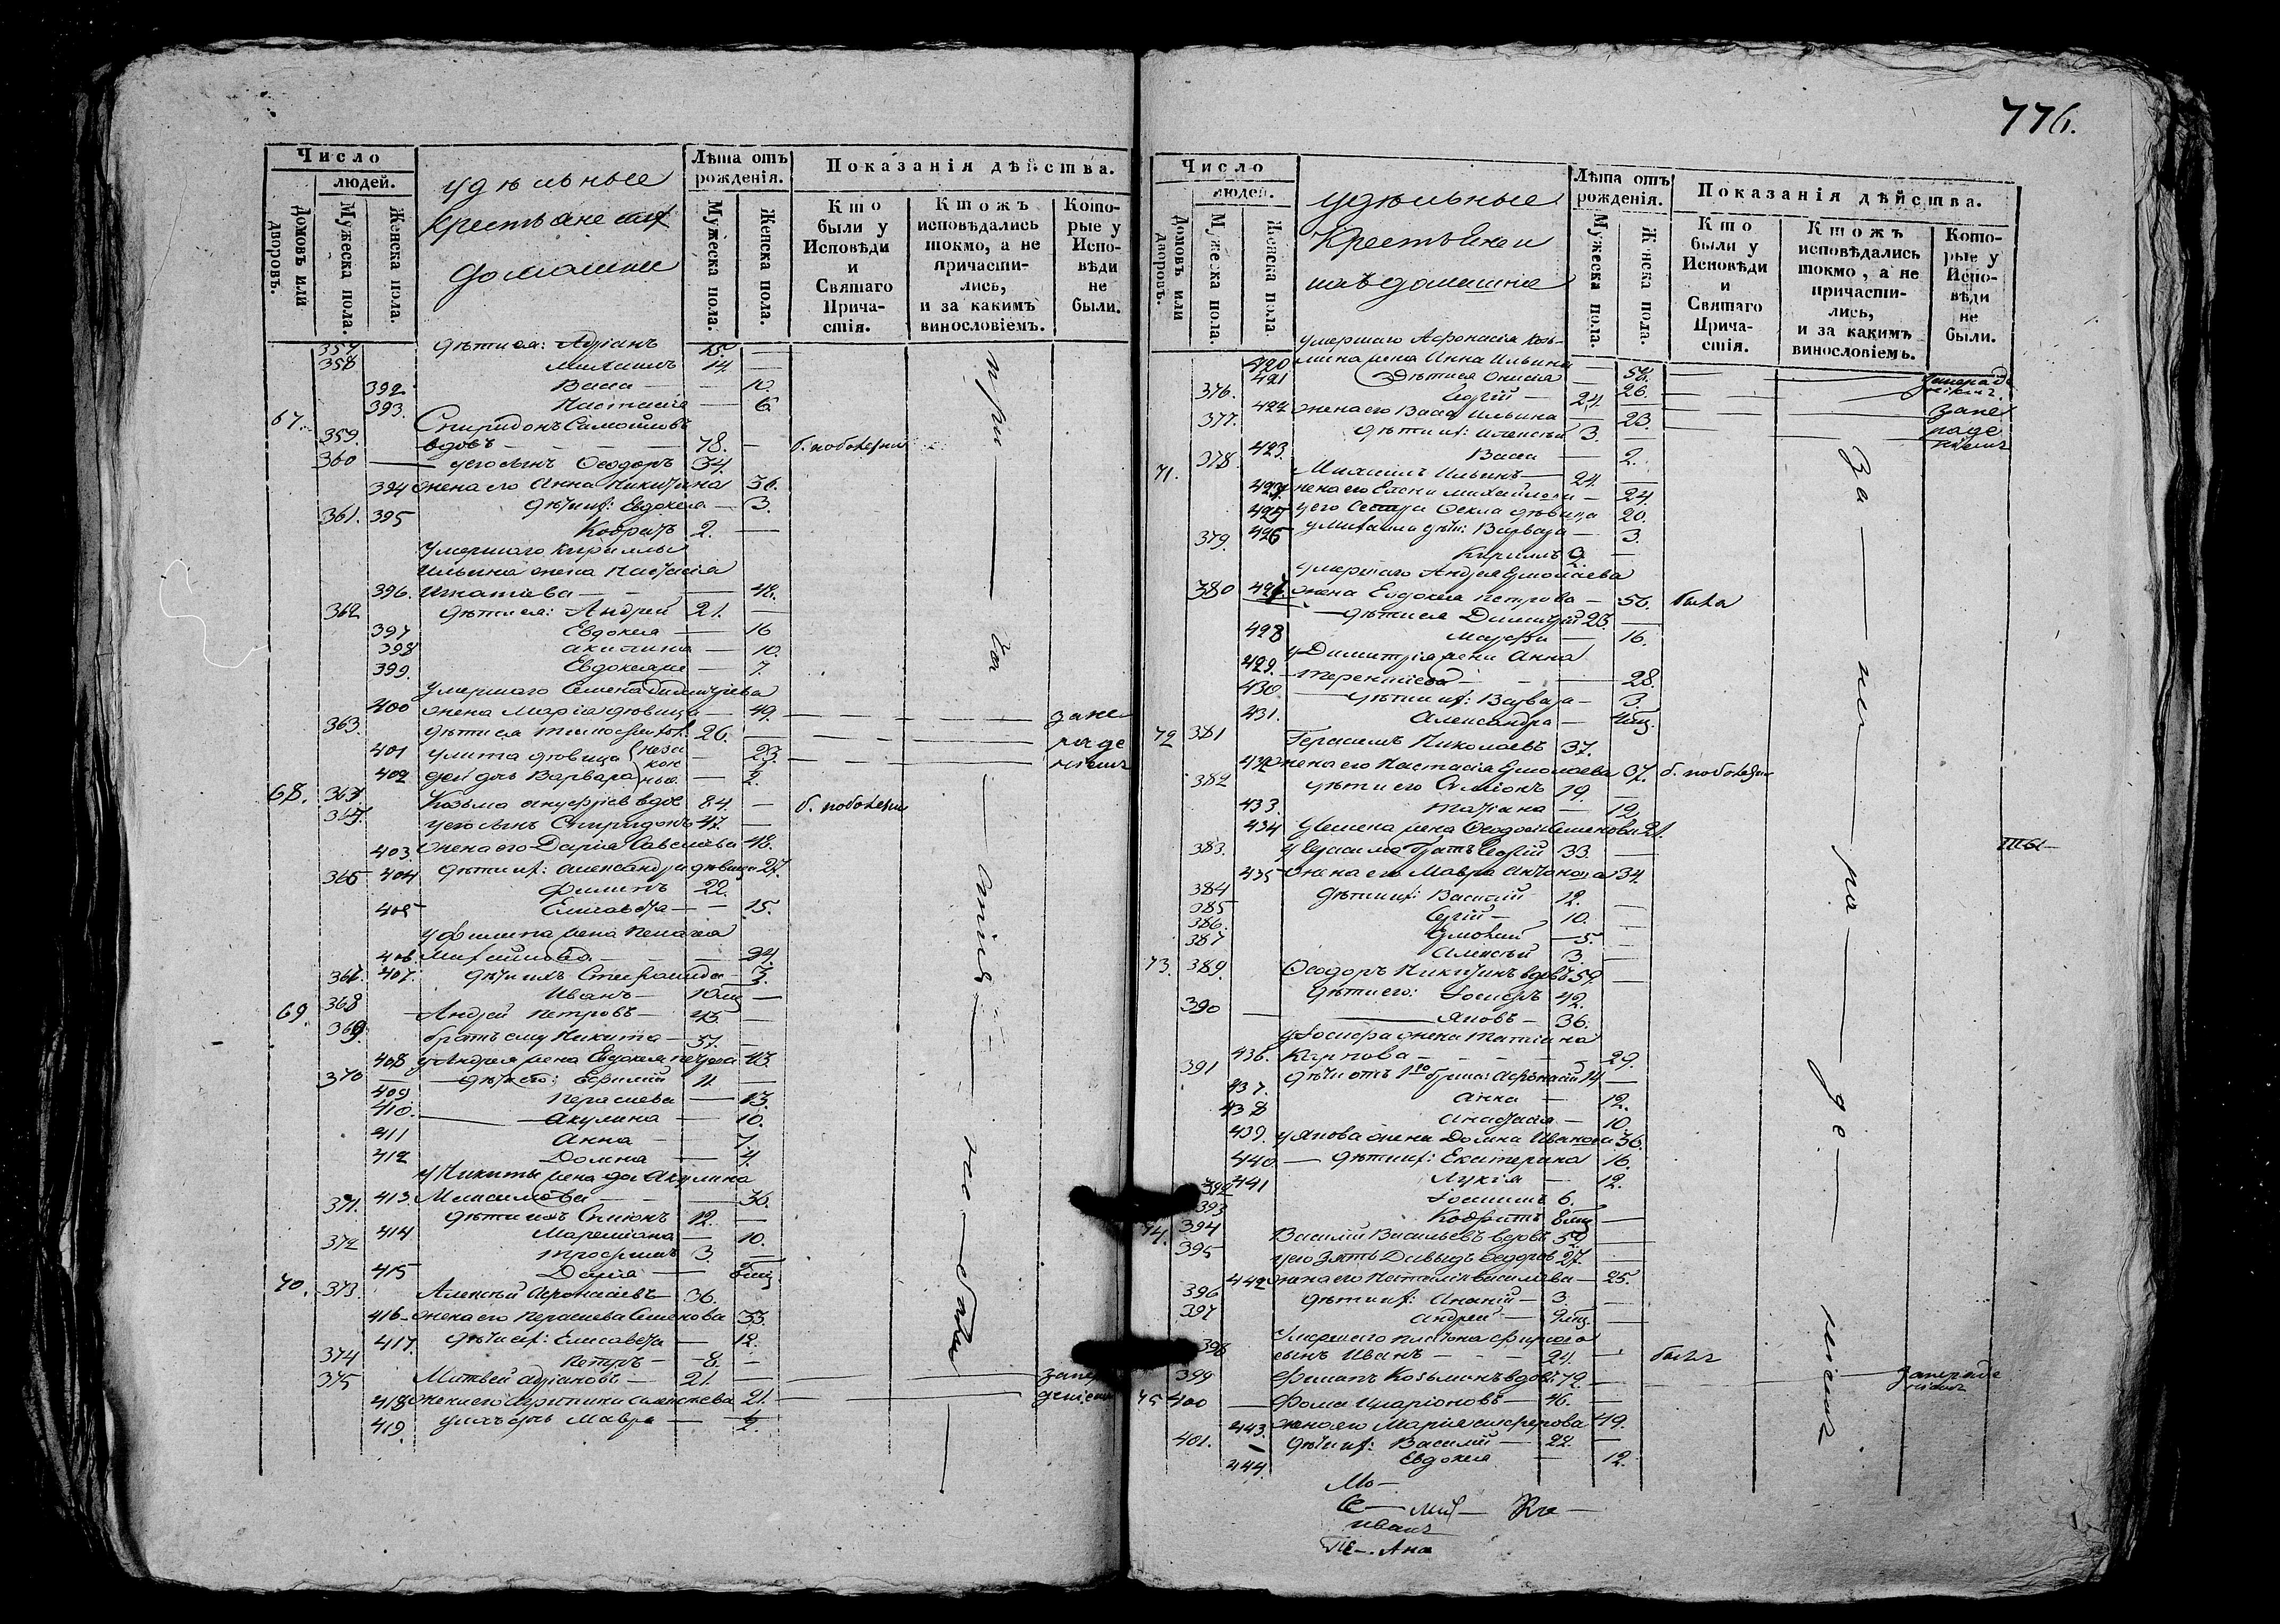 776.
Число
людей.
Домовъ или дворовъ.
Мужеска пола.
Женска пола.
удѣльные
крестьяне ихъ
домашние
Лѣта отъ
рожденія.
Мужеска пола.
Женска пола.
Показанія дѣйства.
Кто
были у
Исповѣди
и
Святаго
Прича-
стія.
Ктожъ
исповѣдались
токмо, а не
причасти-
лись,
и за какимъ
винословіемъ.
Кото-
рые у
Испо-
вѣди
не
были.
357 дѣти ея: Адріанъ 15 —
358 Михаилъ 14 —
392 Васса — 10.
393. Настасія — 6
67. Спиридонъ Самойловъ
359. вдовъ 78. — б. по болезни
360 — у его сынъ Ѳеодоръ 34.
394 жена его Анна Никитина 36.
395 дѣти ихъ: Евдокия — 3.
361. Кодратъ 2. —
Умершаго Кириллы
Ильина жена Настасія
396. Игнатиева — 48.
362 дѣти ея: Андрей 21. —
397 Евдокея — 16
398 Акилина — 10.
399. Евдокея — 7.
Умершаго Семена Димитріева
400 жена Марія вдовица — 49.
363. дѣти ея Тимоѳей 26. — зане
401 Улита дѣвица — 23. раде
402 дочь Варвара — 2. ніемъ
68. 363 Козьма вдов 84. — б. по болезни
364. у его сынъ Спиридонъ 47. —
403. жена его Дарія Савельева 48.
404 дѣти ихъ: Александра дѣвица 27.
365 Филипъ 22.
405 Елисавета — 15.
у Филипа жена Пелагея
406 Михайлова — 24.
407. дѣти ихъ Степанида — 3.
367. Иванъ — 10 мц —
69. 368 Андрей Петровъ — 43. —
369. братъ ему Никита — 37. —
408 у Андрея жена Евдокея Петрова 43.
370 дѣти его: Ефимій 11 —
409 Пераскева — 13.
410. Акулина — 10.
411 Анна — 7.
412 Домна — 4.
у Никиты жена Акулина
413. Максимова — 36.
371. дѣти ихъ Симіонъ 12. —
414 Мареміана — 10.
372 Трофимъ 3. —
415 Дарія — 6 мц
70. 373. Алексѣй Аѳонасіевъ 36.
416 жена его Пераскева Семенова 33.
417. дѣти ихъ: Елисавета — 12.
374 Петръ — 8. —
375 Матвей Адріановъ — 21. —
418 жена его Агрипина Алексѣева 21.
419. у ихъ дочь Мавра — 2.
при — ча — стія — не — были
Число
людей.
Домовъ или дворовъ.
Мужеска пола.
Женска пола.
удѣльные
крестьяне и
ихъ домашніе
Лѣта отъ
рожденія.
Мужеска пола.
Женска пола.
Показанія дѣйства.
Кто
были у
Исповѣди
и
Святаго
Прича-
стія.
Ктожъ
исповѣдались
токмо, а не
причасти-
лись,
и за какимъ
винословіемъ.
Кото-
рые у
Испо-
вѣди
не
были.
умершаго Аѳонасія Козь-
420 мина жена Анна Ильина — 56.
421 дѣти ея Онисія — 26.
376. Сергій — 24
422 жена его Васса Ильина — 23.
377. дѣти ихъ: Алексѣй 3. —
423. Васса — 2.
71. 378. Михаилъ Ильинъ — 24. —
424 жена его Елена Михайлова — 24.
425 у его сестра Ѳекла дѣвица 20.
426 у Михаила дѣти: Варвара — 3
379. Кирилъ 2. —
умершаго Андрея Ермолаева
427. жена Евдокея Петрова — 56. была
380 дѣти ея Димитрій 23. —
428 Марѳа — 16.
у Димитрія жена Анна
429. Терентіева — 28.
430 дѣти ихъ: Варвара — 3.
431. Александра — 4 мц.
72 381 Герасимъ Николаевъ 37.
432 жена его Настасія Ермолаева 37. б. по болезни
382 дѣти его Симіонъ 19. —
433. Татіана — 12
434 у Семена жена Ѳеодосія Семенова 21.
383. у Герасима братъ Георгій 33. —
435 жена его Мавра Антонова 34.
384 дѣти ихъ: Василій 12. —
385 Сергій — 10. —
386. Ермолай — 5. —
387 Алексѣй 3. —
73. 389. Ѳеодоръ Никитинъ вдовъ 59. —
дѣти его: Іосифъ 42.
390 Яковъ — 36.
у Іосифа жена Татіана
436. Карпова — 29.
391 дѣти отъ 1го брака: Аѳонасій 14 —
437. Анна — 12.
438 Анастасія — 10
439. у Якова жена Домна Иванова 36.
440 — дѣти ихъ: Екатерина 16.
441 Лукія — 12.
392 Іоакимъ 6.
393 Кодратъ 8 мц —
74. 394 Василій Васильевъ вдовъ 59 —
395 у его зять Давыдъ Ѳедоровъ 27. —
442 жена его Наталія Васильева — 25.
396 дѣти ихъ: Ананій — 3 —
397 Андрей — 9 мц. —
398 сынъ Иванъ — 24. — былъ
399 Филипъ Козьминъ вдовъ 72. —
75 400 Ѳома Иларіоновъ — 46. —
443. жена его Марія 49.
401. дѣти ихъ: Василій — 22. —
444. Евдокея — 12.
за — не — ра — де — ніемъ
Мо —
Се — Мих — Ко —
Иванъ
Пе — Ана